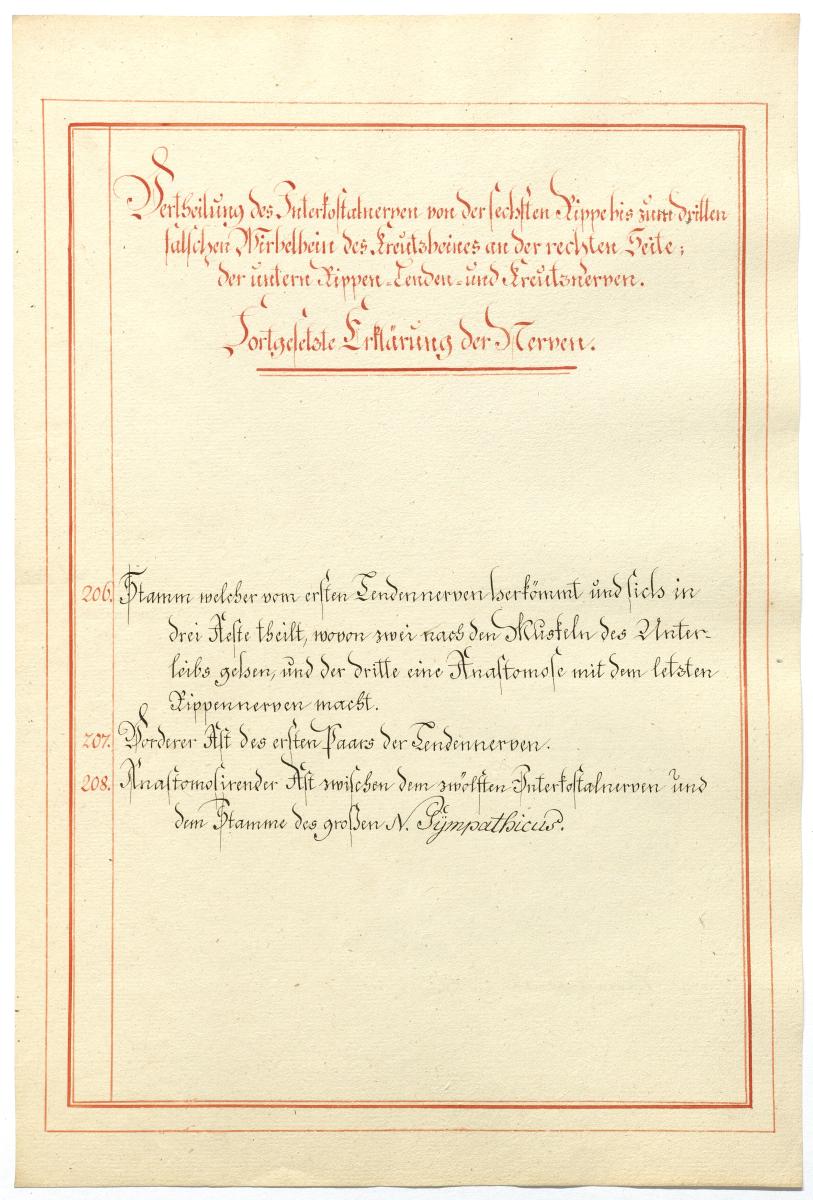 Vertheilung des Interkostalnerven von der sechsten Rippe bis zum dritten
falschen Wirbelbein des Kreutzbeines an der rechten Seite;
der untern Rippen-Lenden-und Kreutznerven.
Fortgesetzte Erklärung der Nerven.
206. Stamm welcher vom ersten Lendennerven herkömmt und sich in
drei Aeste theilt, wovon zwei nach den Muskeln des Unter-
leibs gehen, und der dritte eine Anastomose mit dem letzten
Rippennerven macht.
207. Vorderer Ast des ersten Paars der Lendennerven.
208. Anastomosirender Ast zwischen dem zwölften Interkostalnerven und
dem Stamme des großen N. Sÿmpathicus.